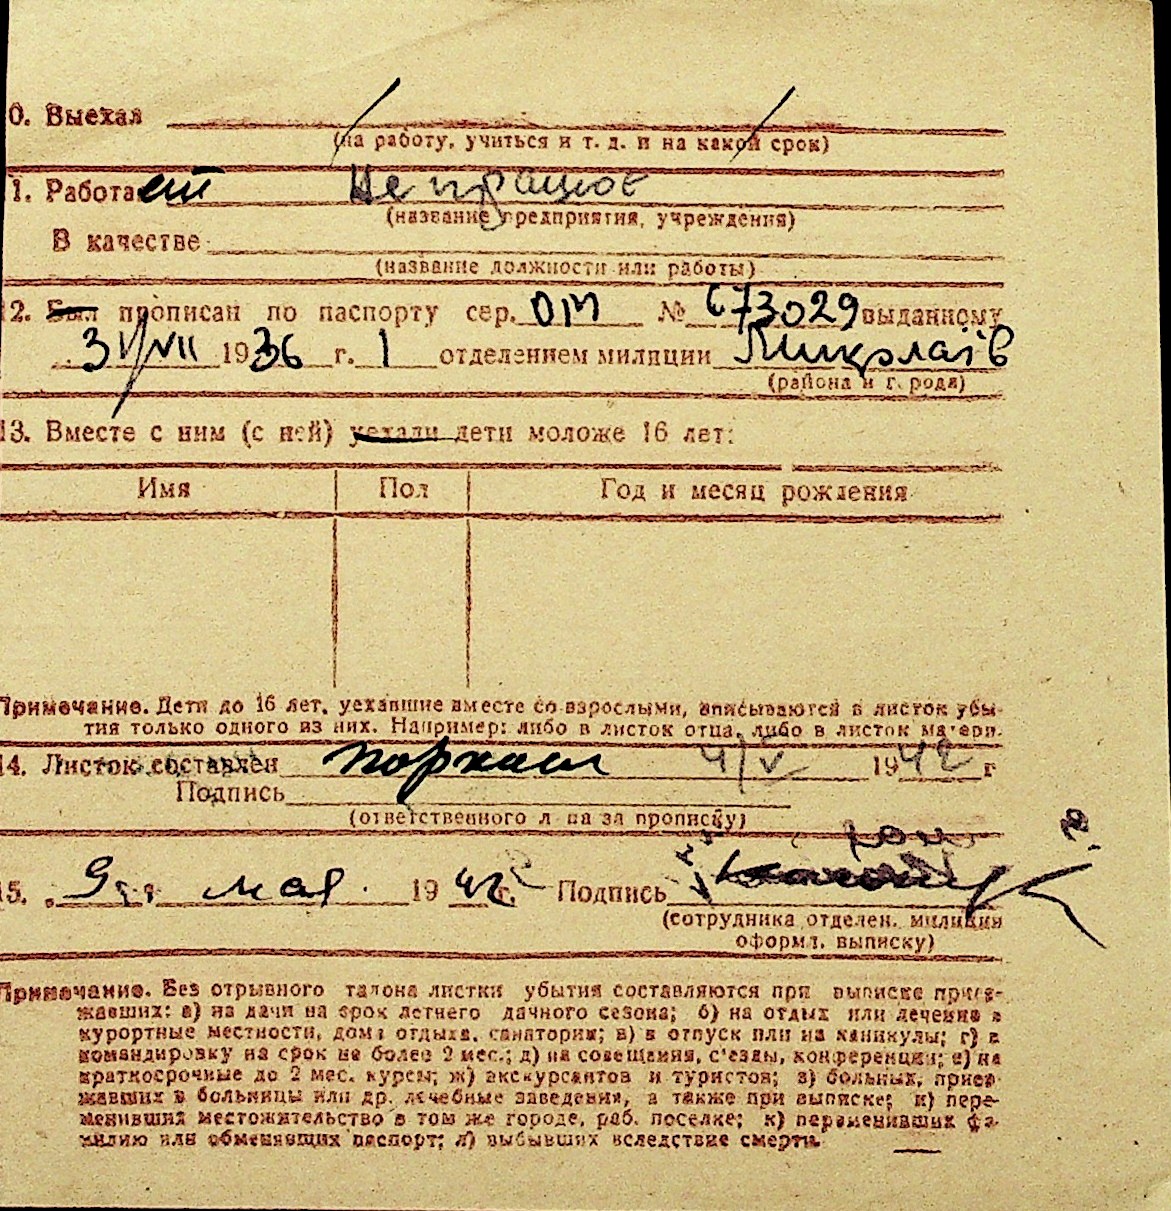 0. Выехал
(на работу, учиться и т. д. и на какой срок)
1. Работает Не працює
(название предприятия, учреждения)
В качестве
(название должности или работы)
12. Был прописан по паспорту сер. ОМ № 673029 выданному
31/VII 1936 г. 1 отделением милиции Миколаїв
(района и г. рода)
13. Вместе с ним (с ней) уехали дети моложе 16 лет:
Имя Пол Год и месяц рождения
Примечание. Дети до 16 лет, уехавшие вместе со взрослыми, вписываются в листок убы-
тия только одного из них. Например: либо в листок отца, либо в листок матери.
14. Листок составлен 4/V 1942 г
Подпись
(ответственного л-ца за прописку)
15. 9 мая 1942 г. Подпись
(сотрудника отделен. милиции
оформл. выписку)
Примечание. Без отрывного талона листки убытия составляются при выписке приез-
жавших: а) на дачи на срок летнего дачного сезона; б) на отдых или лечение в
курортные местности, дома отдыха, санатории; в) в отпуск или на каникулы; г) в
командировку на срок не более 2 мес.; д) на совещания, с'езды, конференции; е) на
краткосрочные до 2 мес. курсы; ж) экскурсантов и туристов; з) больных, приез-
жавших в больницы или др. лечебные заведения, а также при выписке; и) пере-
менивших местожительство в том же городе, раб. поселке; к) переменивших фа-
милию или обменявших паспорт; л) выбывших вследствие смерти.